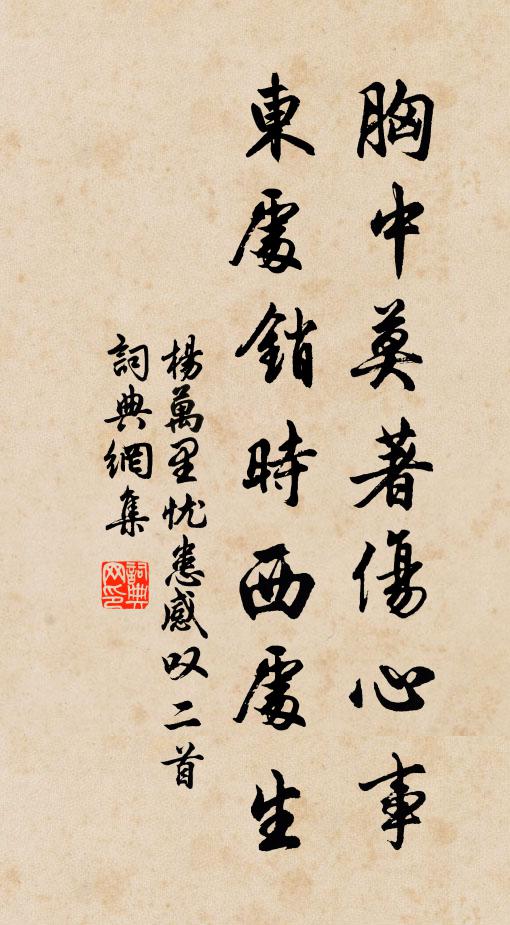 胸中莫著傷心事
東處銷時西處生
楊萬里忧患感叹二首
詞典網集
詞典网印